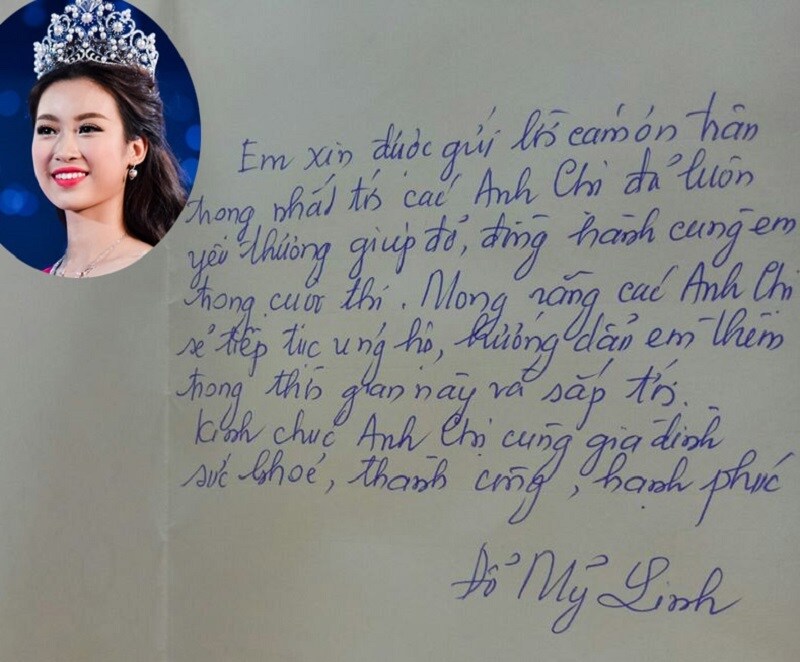 Em xin được gửi lời cảm ơn trân
trọng nhất tới các Anh Chị đã luôn
yêu thương giúp đỡ, đồng hành cùng em
trong cuộc thi. Mong rằng các Anh Chị
sẽ tiếp tục ủng hộ, hướng dẫn em thêm
trong thời gian này và sắp tới.
Kính chúc Anh Chị cùng gia đình
sức khoẻ, thành công, hạnh phúc
Đỗ Mỹ Linh